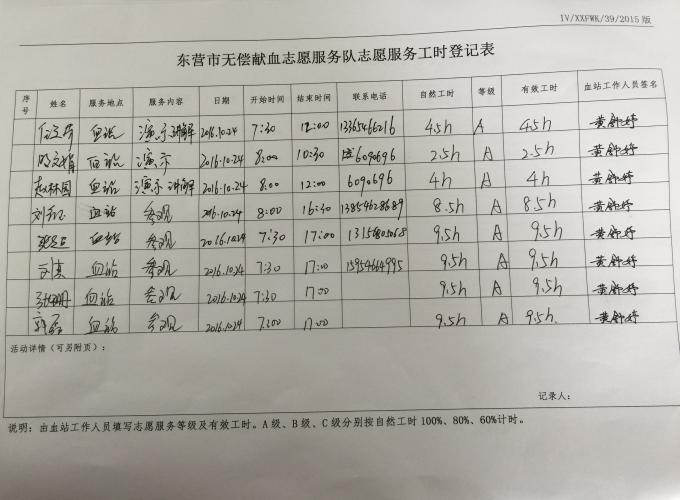 IV/XXFWK/39/2015版
东营市无偿献血志愿服务队志愿服务工时登记表
序号 姓名 服务地点 服务内容 日期 开始时间 结束时间 联系电话 自然工时 等级 有效工时 血站工作人员签名
血站 演示讲解 2016.10.24 7:30 12:00 13365466216 4.5h A 4.5h 黄舒婷
血站 演示 2016.10.24 8:00 10:30 6090696 2.5h A 2.5h 黄舒婷
赵林国 血站 演示讲解 2016.10.24 8:00 12:00 6090696 4h A 4h 黄舒婷
血站 参观 2016.10.24 8:00 16:30 13854628689 8.5h A 8.5h 黄舒婷
血站 参观 2016.10.24 7:30 17:00 9.5h A 9.5h 黄舒婷
血站 参观 2016.10.24 7:30 17:00 15954664995 9.5h A 9.5h 黄舒婷
血站 参观 2016.10.24 7:30 17:00 9.5h A 9.5h 黄舒婷
血站 参观 2016.10.24 17:00 9.5h A 9.5h 黄舒婷
活动详情（可另附页）：
记录人：
说明：由血站工作人员填写志愿服务等级及有效工时。A级、B级、C级分别按自然工时100%、80%、60%计时。